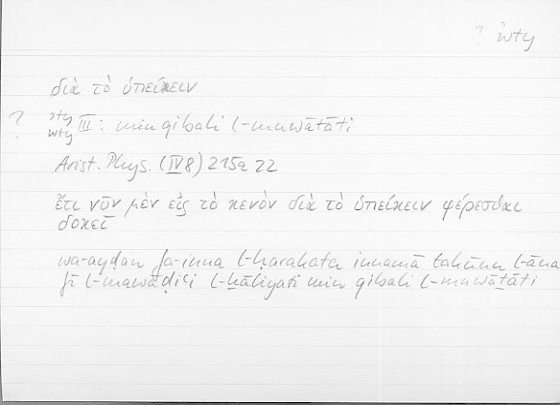 ? ʾwty
διὰ τὸ ὑπείκειν
? ʾty wty III: min qibali l-muwātāti
Arist. Phys. (IV 8) 215a 22
ἔτι νῦν μὲν εἰς τὸ κενὸν διὰ τὸ ὑπείκειν φέρεσθαι
δοκεῖ
wa-ayḍan fa-inna l-ḥarakata innamā takūnu l-āna
fī l-mawāḍiʿi l-ḫāliyati min qibali l-muwātāti